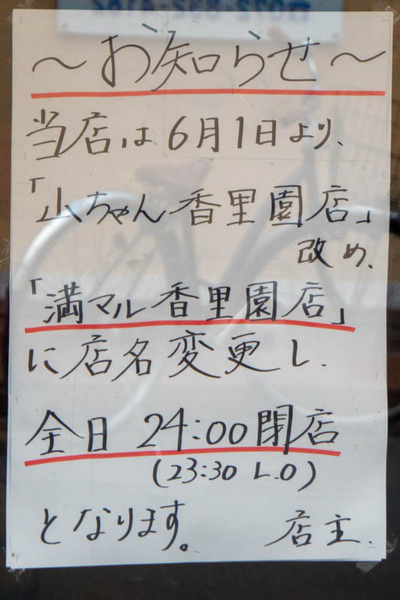 ～お知らせ～
当店は6月1日より、
「山ちゃん香里園店」
改め、
「満マル香里園店」
に店名変更し、
全日 24:00閉店
(23:30 L.O)
となります。 店主.